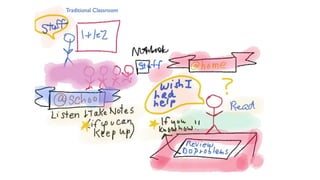 Traditional Classroom
Stuff
1+1=2
Notebook
Stuff
@home
?
wish I
had
help
@school
Read
Listen & Take Notes
if you can
Keep up)
If you
know how..
Review,
Do problems